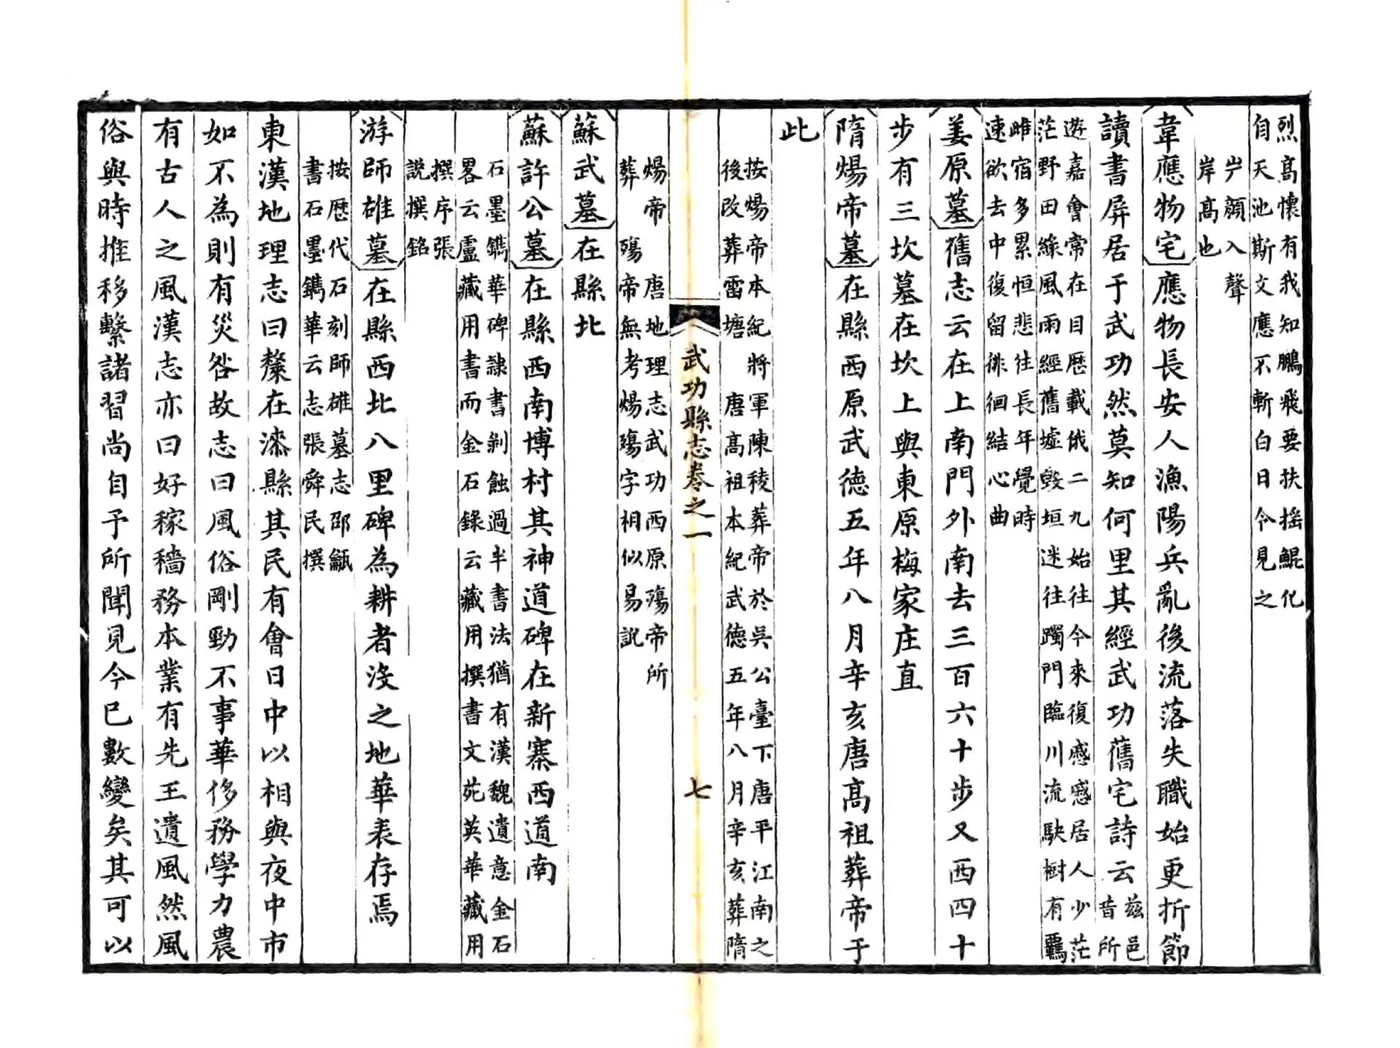 烈高懷有我知鵬飛要扶搖鯤化
自天池斯文應不斬白日今見之
屵顏入聲
岸高也
韋應物宅應物長安人漁陽兵亂後流落失職始更折節
讀書屏居于武功然莫知何里其經武功舊宅詩云茲邑
昔所
遊嘉會常在目歷載俄二九始往今來復感感居人少茫
茫野田綠風雨經舊墟毀垣迷往躅門臨川流駛樹有羈
雌宿多累恒悲往長年覺時
速欲去中復留徘徊結心曲
姜原墓舊志云在上南門外南去三百六十步又西四十
步有三坎墓在坎上與東原梅家庄直
隋煬帝墓在縣西原武德五年八月辛亥唐高祖葬帝于
此
按煬帝本紀將軍陳稜葬帝於吳公臺下唐平江南之
後改葬雷塘 唐高祖本紀武德五年八月辛亥葬隋
煬帝 唐地理志武功西原殤帝所
葬殤帝無考煬殤字相似易訛
武功縣志卷之一
七
蘇武墓在縣北
蘇許公墓在縣西南博村其神道碑在新寨西道南
石墨鐫華碑隸書剝蝕過半書法猶有漢魏遺意金石
畧云盧藏用書而金石錄云藏用撰書文苑英華藏用
撰序張
說撰銘
游師雄墓在縣西北八里碑為耕者沒之地華表存焉
按歷代石刻師雄墓志邵䶵
書石墨鐫華云志張舜民撰
東漢地理志曰斄在漆縣其民有會日中以相與夜中市
如不為則有災咎故志曰風俗剛勁不事華侈務學力農
有古人之風漢志亦曰好稼穡務本業有先王遺風然風
俗與時推移繫諸習尚自予所聞見今已數變矣其可以